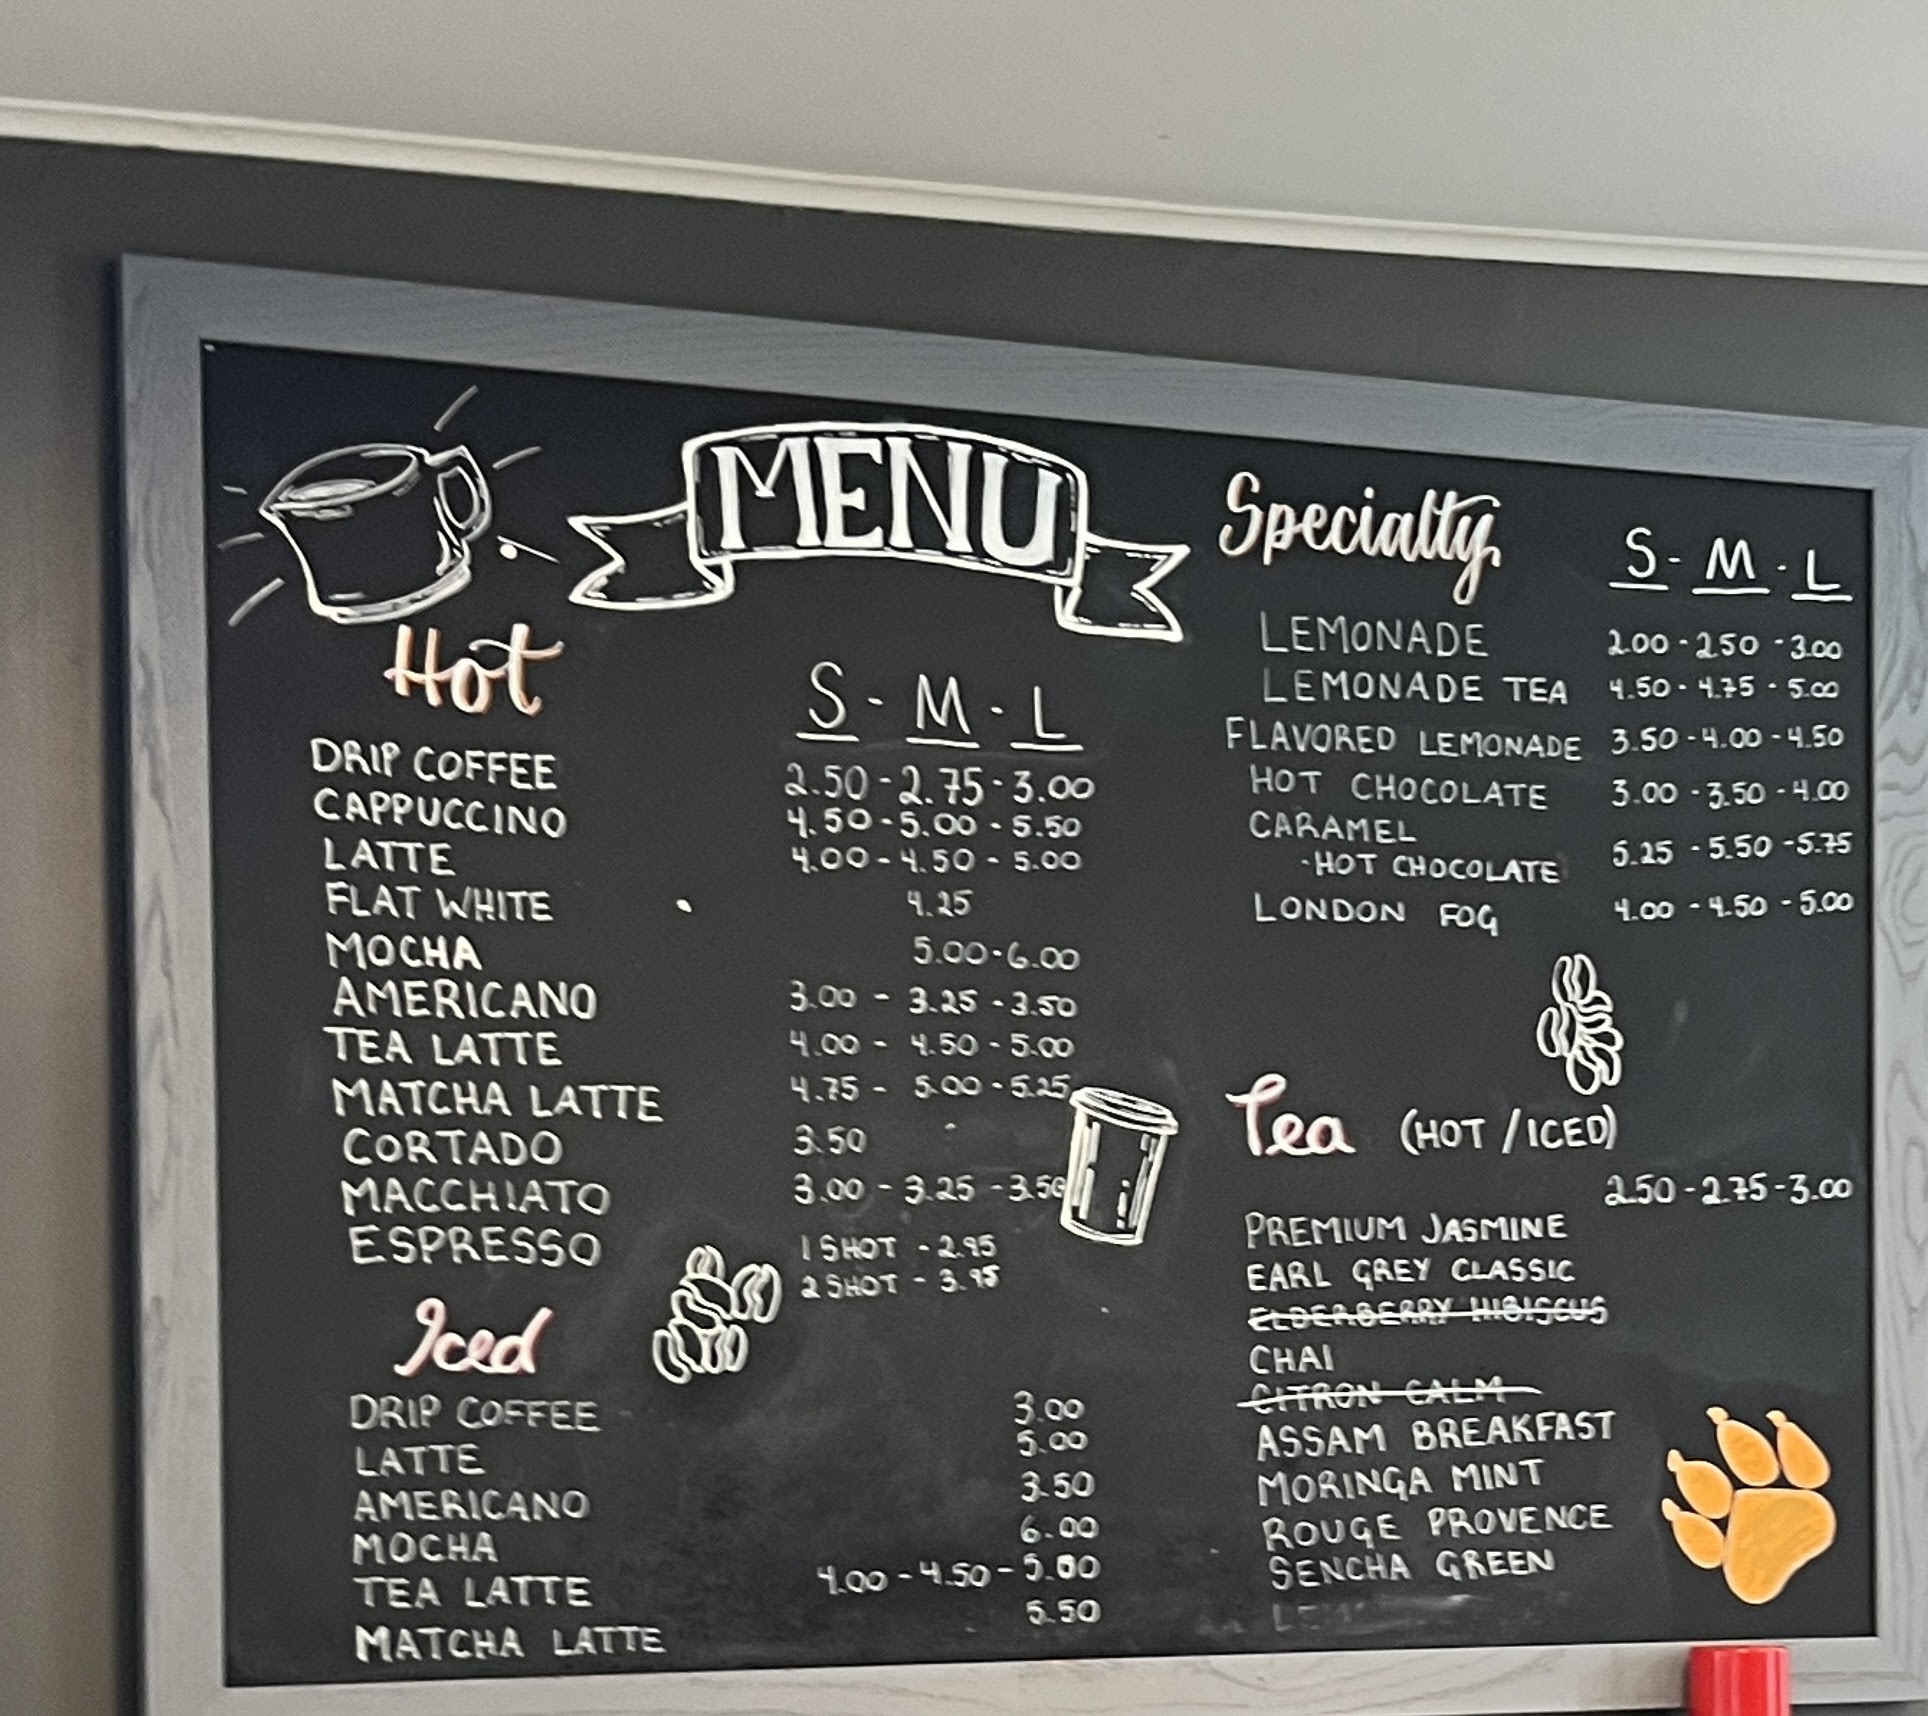 MENU
Hot
S - M - L
DRIP COFFEE 2.50 - 2.75 - 3.00
CAPPUCCINO 4.50 - 5.00 - 5.50
LATTE 4.00 - 4.50 - 5.00
FLAT WHITE 4.25
MOCHA 5.00 - 6.00
AMERICANO 3.00 - 3.25 - 3.50
TEA LATTE 4.00 - 4.50 - 5.00
MATCHA LATTE 4.75 - 5.00 - 5.25
CORTADO 3.50
MACCHIATO 3.00 - 3.25 - 3.50
ESPRESSO 1 SHOT - 2.95
2 SHOT - 3.95
Iced
DRIP COFFEE 3.00
LATTE 5.00
AMERICANO 3.50
MOCHA 6.00
TEA LATTE 4.00 - 4.50 - 5.00
MATCHA LATTE 5.50
Specialty
S - M - L
LEMONADE 2.00 - 2.50 - 3.00
LEMONADE TEA 4.50 - 4.75 - 5.00
FLAVORED LEMONADE 3.50 - 4.00 - 4.50
HOT CHOCOLATE 3.00 - 3.50 - 4.00
CARAMEL
-HOT CHOCOLATE 5.25 - 5.50 - 5.75
LONDON FOG 4.00 - 4.50 - 5.00
Tea (HOT / ICED)
2.50 - 2.75 - 3.00
PREMIUM JASMINE
EARL GREY CLASSIC
ELDERBERRY HIBISCUS
CHAI
CITRON CALM
ASSAM BREAKFAST
MORINGA MINT
ROUGE PROVENCE
SENCHA GREEN